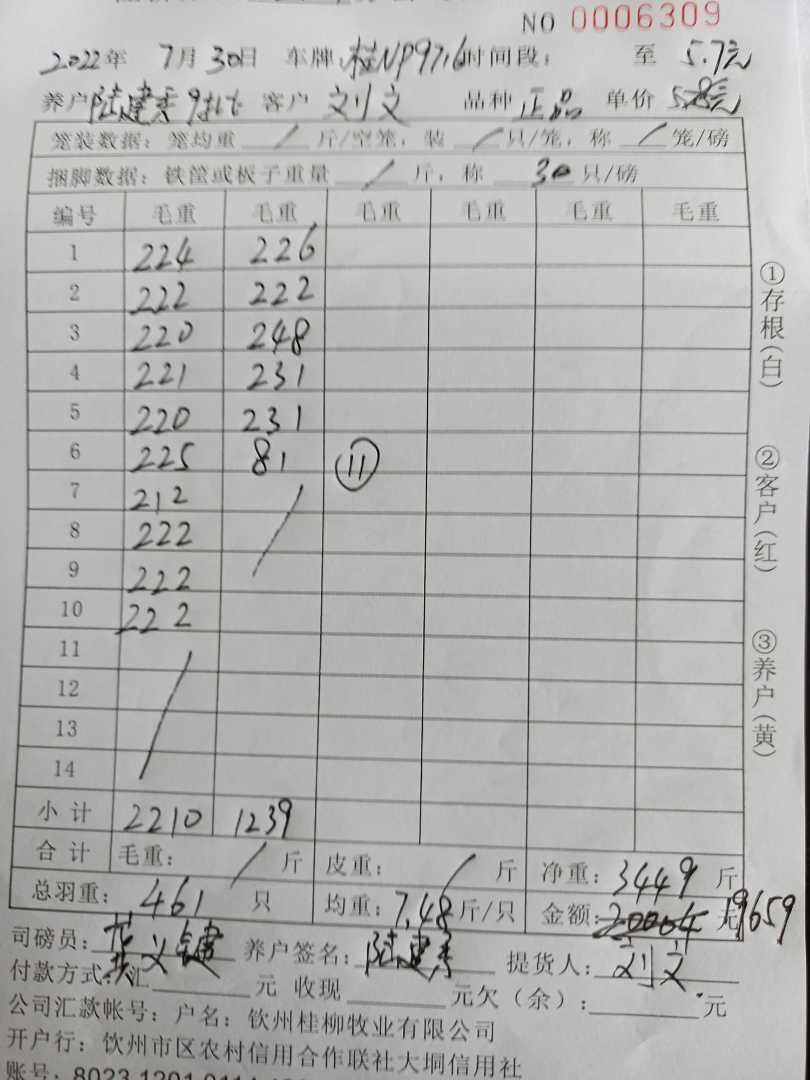 NO 0006309
2022年 7月30日 车牌:桂NP9716 时间段: 至 5.7元
养户 陆建秀 9批 客户 刘文 品种 正品 单价
笼装数据: 笼均重 / 斤/空笼, 装 / 只/笼, 称 / 笼/磅
捆脚数据: 铁筐或板子重量 / 斤, 称 30 只/磅
编号 毛重 毛重 毛重 毛重 毛重 毛重
1 224 226
2 222 222
3 220 248
4 221 231
5 220 231
6 225 81 ⑪
7 212 /
8 222
9 222
10 222
11 /
12
13
14
小计 2210 1239
合计 毛重: / 斤 皮重: / 斤 净重: 3449 斤
总羽重: 461 只 均重: 7.48 斤/只 金额: 20064 元 19659
司磅员: 养户签名: 陆建秀 提货人: 刘文
付款方式: 汇 元 收现 元欠(余): 元
公司汇款帐号: 户名: 钦州桂柳牧业有限公司
开户行: 钦州市区农村信用合作联社大垌信用社
账号: 8023 1201 0114
①存根(白)
②客户(红)
③养户(黄)